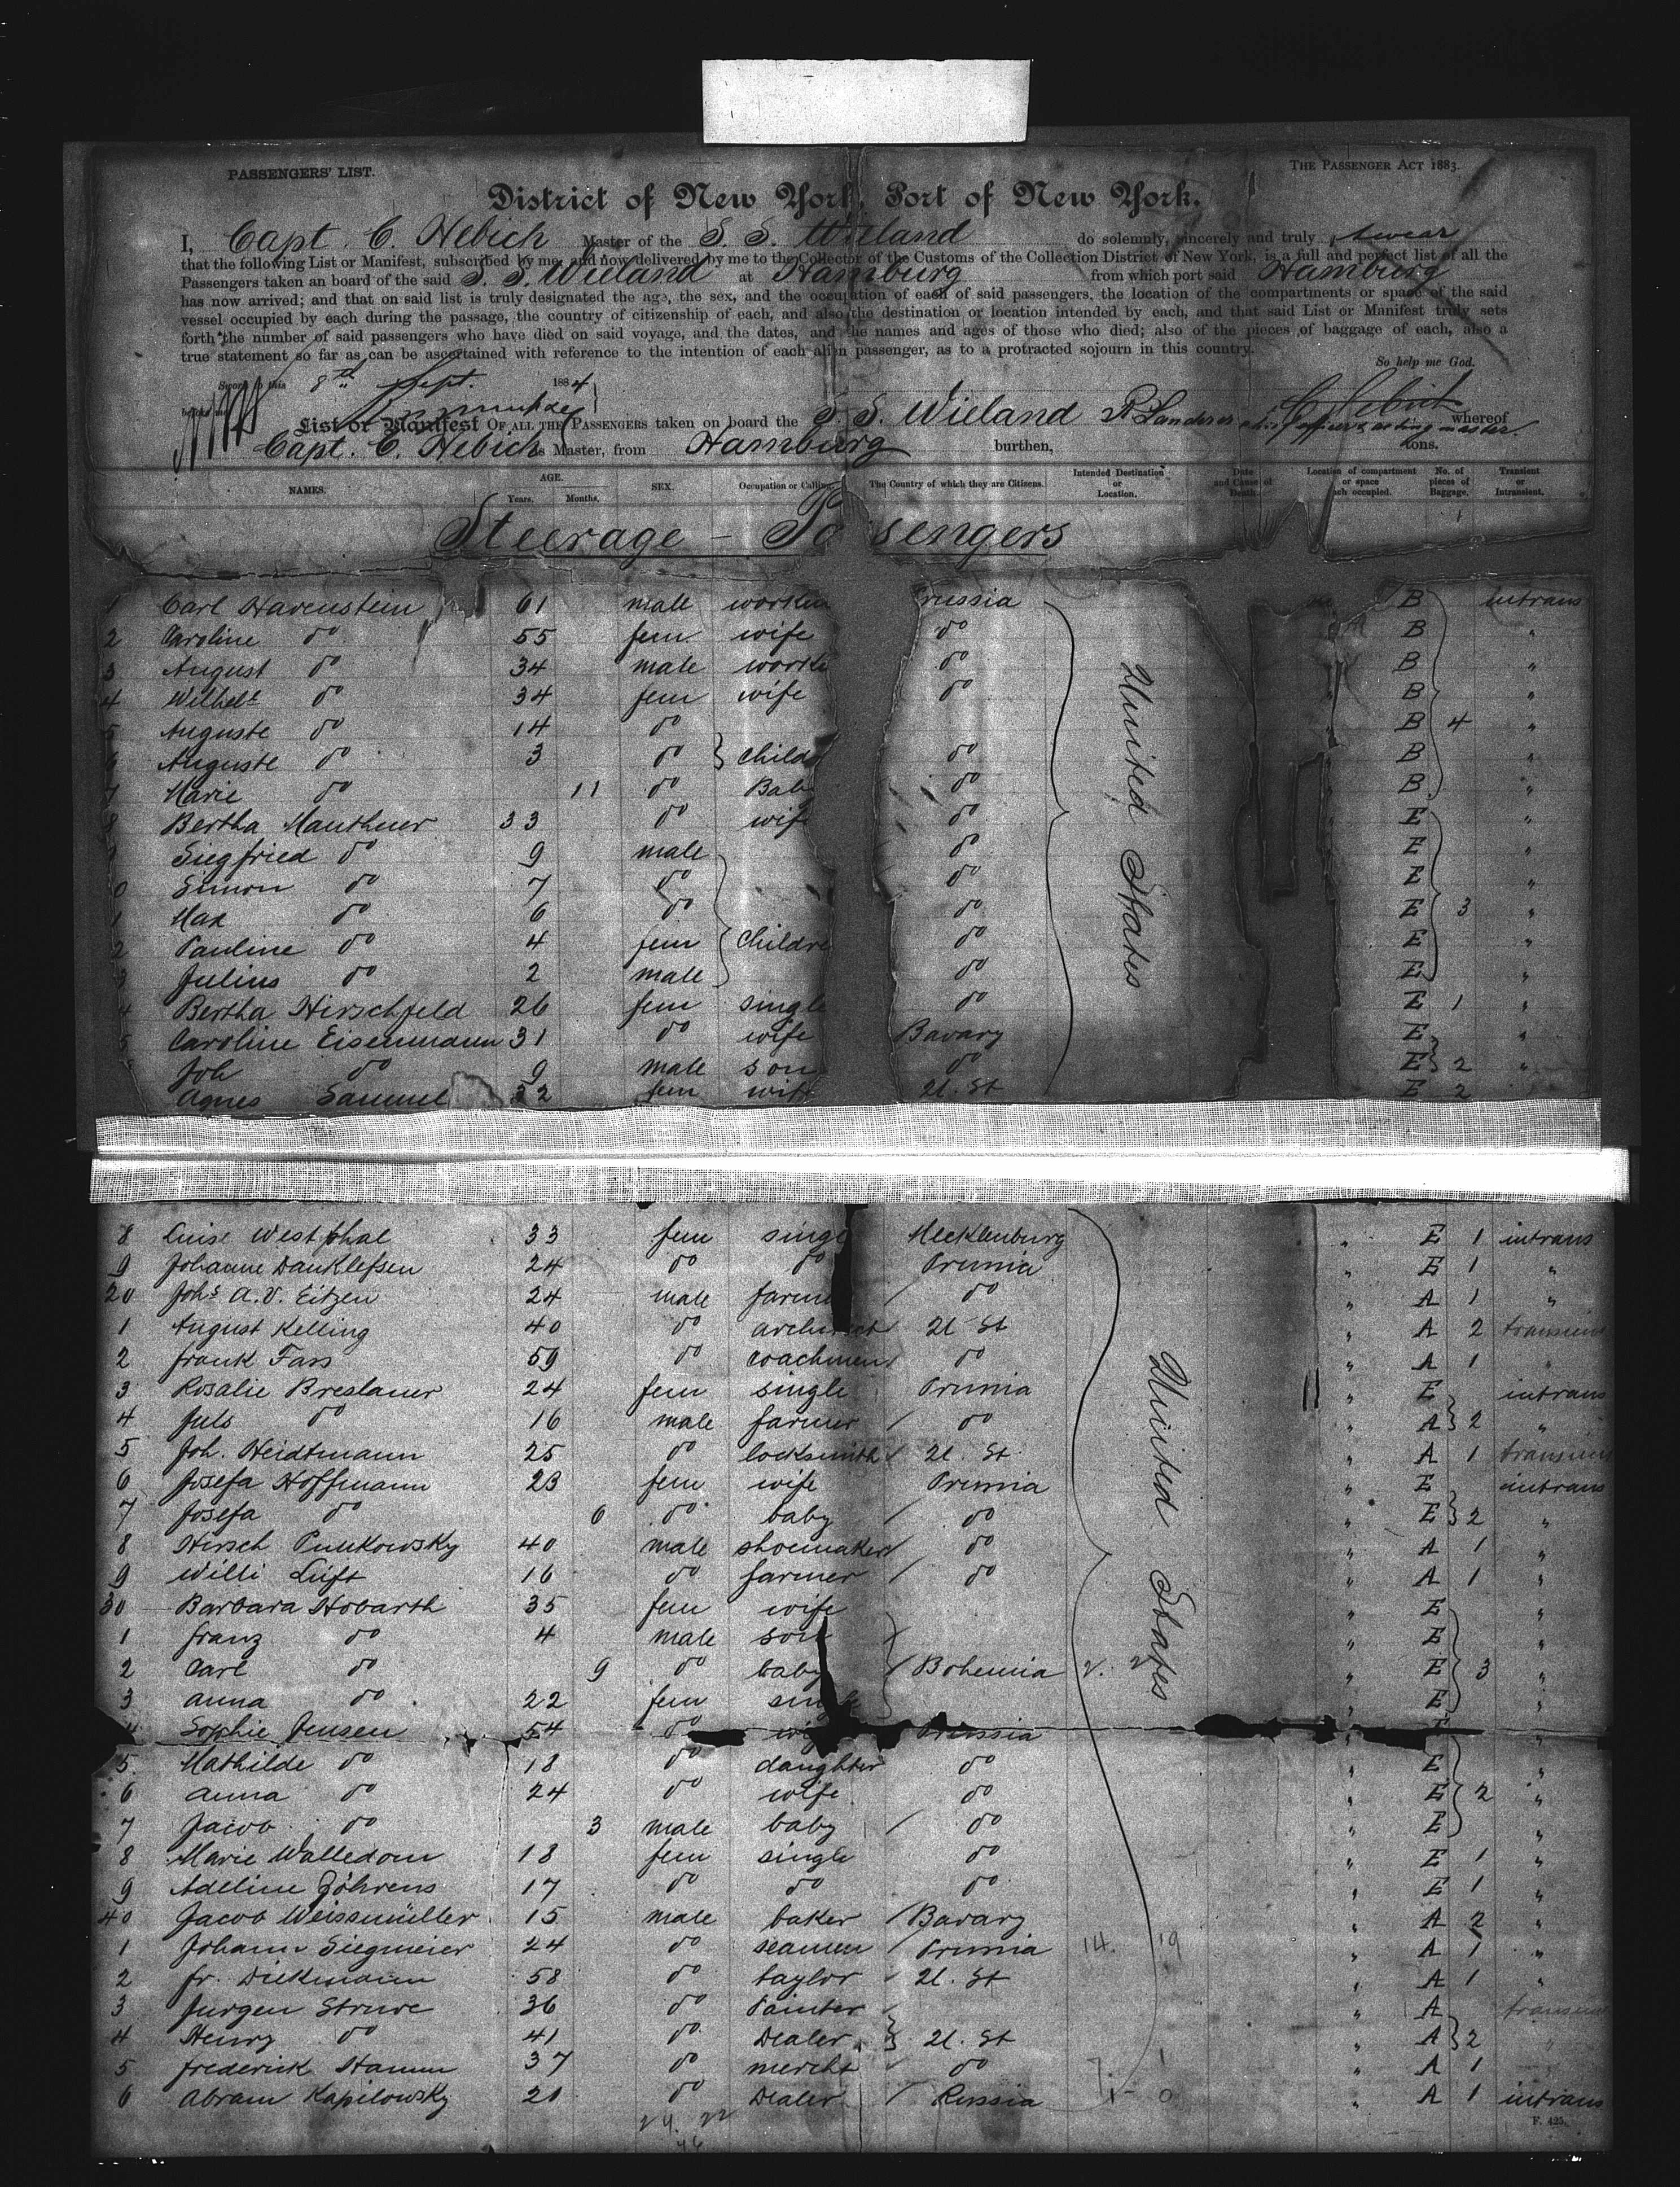 PASSENGERS' LIST.
THE PASSENGER ACT 1883.
District of New York, Port of New York.
I, Capt. C. Hebich Master of the S. S. Wieland do solemnly, sincerely and truly swear
that the following List or Manifest, subscribed by me, and now delivered by me to the Collector of the Customs of the Collection District of New York, is a full and perfect list of all the
Passengers taken on board of the said S. S. Wieland at Hamburg from which port said Hamburg
has now arrived; and that on said list is truly designated the age, the sex, and the occupation of each of said passengers, the location of the compartments or space of the said
vessel occupied by each during the passage, the country of citizenship of each, and also the destination or location intended by each, and that said List or Manifest truly sets
forth the number of said passengers who have died on said voyage, and the dates, and the names and ages of those who died; also of the pieces of baggage of each, also a
true statement so far as can be ascertained with reference to the intention of each alien passenger, as to a protracted sojourn in this country.
So help me God.
Sworn to this 8th Sept. 1884
before me C Hebich
List or Manifest OF ALL THE PASSENGERS taken on board the S. S. Wieland R Landerer chief officer & acting master. whereof
Capt. C. Hebich is Master, from Hamburg burthen, tons.
NAMES. AGE. Years. Months. SEX. Occupation or Calling. The Country of which they are Citizens. Intended Destination or Location. Date and Cause of Death. Location of compartment or space each occupied. No. of pieces of Baggage. Transient or Intransient.
Steerage - Passengers
1 Carl Havenstein 61 male worker russia B intrans
2 Caroline do 55 fem wife do B "
3 August do 34 male worke do B "
4 Wilhelt do 34 fem wife do B "
5 Auguste do 14 do B 4 "
6 Auguste do 3 do childr do B "
7 Marie do 11 do Bab do B "
8 Bertha Manthner 33 do wife do E "
Siegfried do 9 male do E "
0 Simon do 7 do do E "
1 Max do 6 do do E 3 "
2 Pauline do 4 fem Childre do E "
3 Julius do 2 male do E "
4 Bertha Hirschfeld 26 fem single do E 1 "
5 Caroline Eisenmann 31 do wife Bavary E "
Joh do 9 male son do E 2 "
Agnes Samuel 32 fem wife U. St E 2
United States
8 Luise Westphal 33 fem singl Mecklenburg " E 1 intrans
9 Johanne Danklefsen 24 do do Prussia " E 1 "
20 Johs A. V. Eitzen 24 male farme / do " A 1 "
1 August Kelling 40 do architect U St " A 2 transient
2 Frank Fass 59 do coachmen / do " A 1 "
3 Rosalie Breslauer 24 fem single Prussia " E intrans
4 Juls do 16 male farmer / do " A 2 "
5 Joh. Heidtmann 25 do locksmith / U. St. " A 1 transient
6 Josefa Hoffmann 23 fem wife Prussia " E intrans
7 Josefa do 6 do baby / do " E 2 "
8 Hirsch Punkowsky 40 male shoemaker / do " A 1 "
9 Willi Lüft 16 do farmer / do " A 1 "
30 Barbara Hobarth 35 fem wife " E "
1 Franz do 4 male son " E "
2 Carl do 9 do baby / Bohemia " E 3 "
3 Anna do 22 fem single " E "
4 Sophie Jensen 54 do wife Prussia E "
5 Mathilde do 18 do daughter do " E "
6 Anna do 24 do wife do " E 2 "
7 Jacob do 3 male baby / do " E "
8 Marie Walledom 18 fem single do " E 1 "
9 Adeline Göhrens 17 do do do " E 1 "
40 Jacob Weissmüller 15 male baker / Bavary " A 2 "
1 Johann Siegmeier 24 do seamen / Prussia 14. 19 " A 1 "
2 Fr. Diekmann 58 do taylor U. St " A 1 "
3 Jurgen Struve 36 do Painter " A transient
4 Henry do 41 do Dealer U. St " A 2
5 Frederick Hamm 37 do mercht do " A 1
6 Abram Kapilowsky 20 do Dealer / Russia " A 1 intrans
United States
24. 22
46
F. 425.